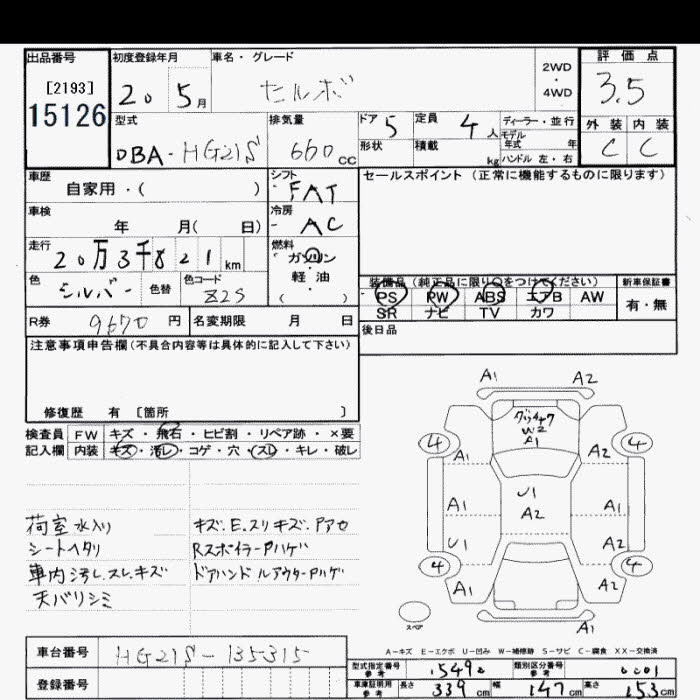 出品番号 初度登録年月 車名・グレード 2WD ・ 4WD 評価点
[2193] 20 5月 セルボ 3.5
15126 型式 DBA-HG21S 排気量 660cc ドア 5 定員 4人 ディーラー・並行 外装 内装
形状 積載 kg モデル年式 年 C C
ハンドル 左・右
車歴 シフト セールスポイント (正常に機能するものに限ります)
自家用・( ) FAT
車検 冷房
年 月( 日) AC
走行 燃料
20万3千821km ガソリン
色 色替 色コード 軽・油 装備品 (純正品に限り○をつけてください) 新車保証書
シルバー Z2S ( ) PS PW ABS エアB AW 有・無
SR ナビ TV カワ
R券 9670円 名変期限 月 日 後日品
注意事項申告欄(不具合内容等は具体的に記入して下さい)
修復歴 有 [箇所 ]
検査員 FW キズ・飛石・ヒビ割・リペア跡・×要
記入欄 内装 キズ・汚レ・コゲ・穴・スレ・キレ・破レ
荷室水入り
シートヘタリ
車内汚レ.スレ.キズ
天バリシミ
キズ.E.スリキズ.
RスポイラーPハゲ
ドアハンドルアウターPハゲ
A1 A2
W2
A1
4 4
A1 A2
U1
A2
A1 A1
U1 A2
4 4
A1 A2
スペア
A1
A-キズ E-エクボ U-凹み W-補修跡 S-サビ C-腐食 XX-交換済
車台番号 HG21S-135315
登録番号
型式指定番号 参考 類別区分番号 参考 0001
車庫証明用 参考 長さ 339cm 幅 147cm 高さ 153cm